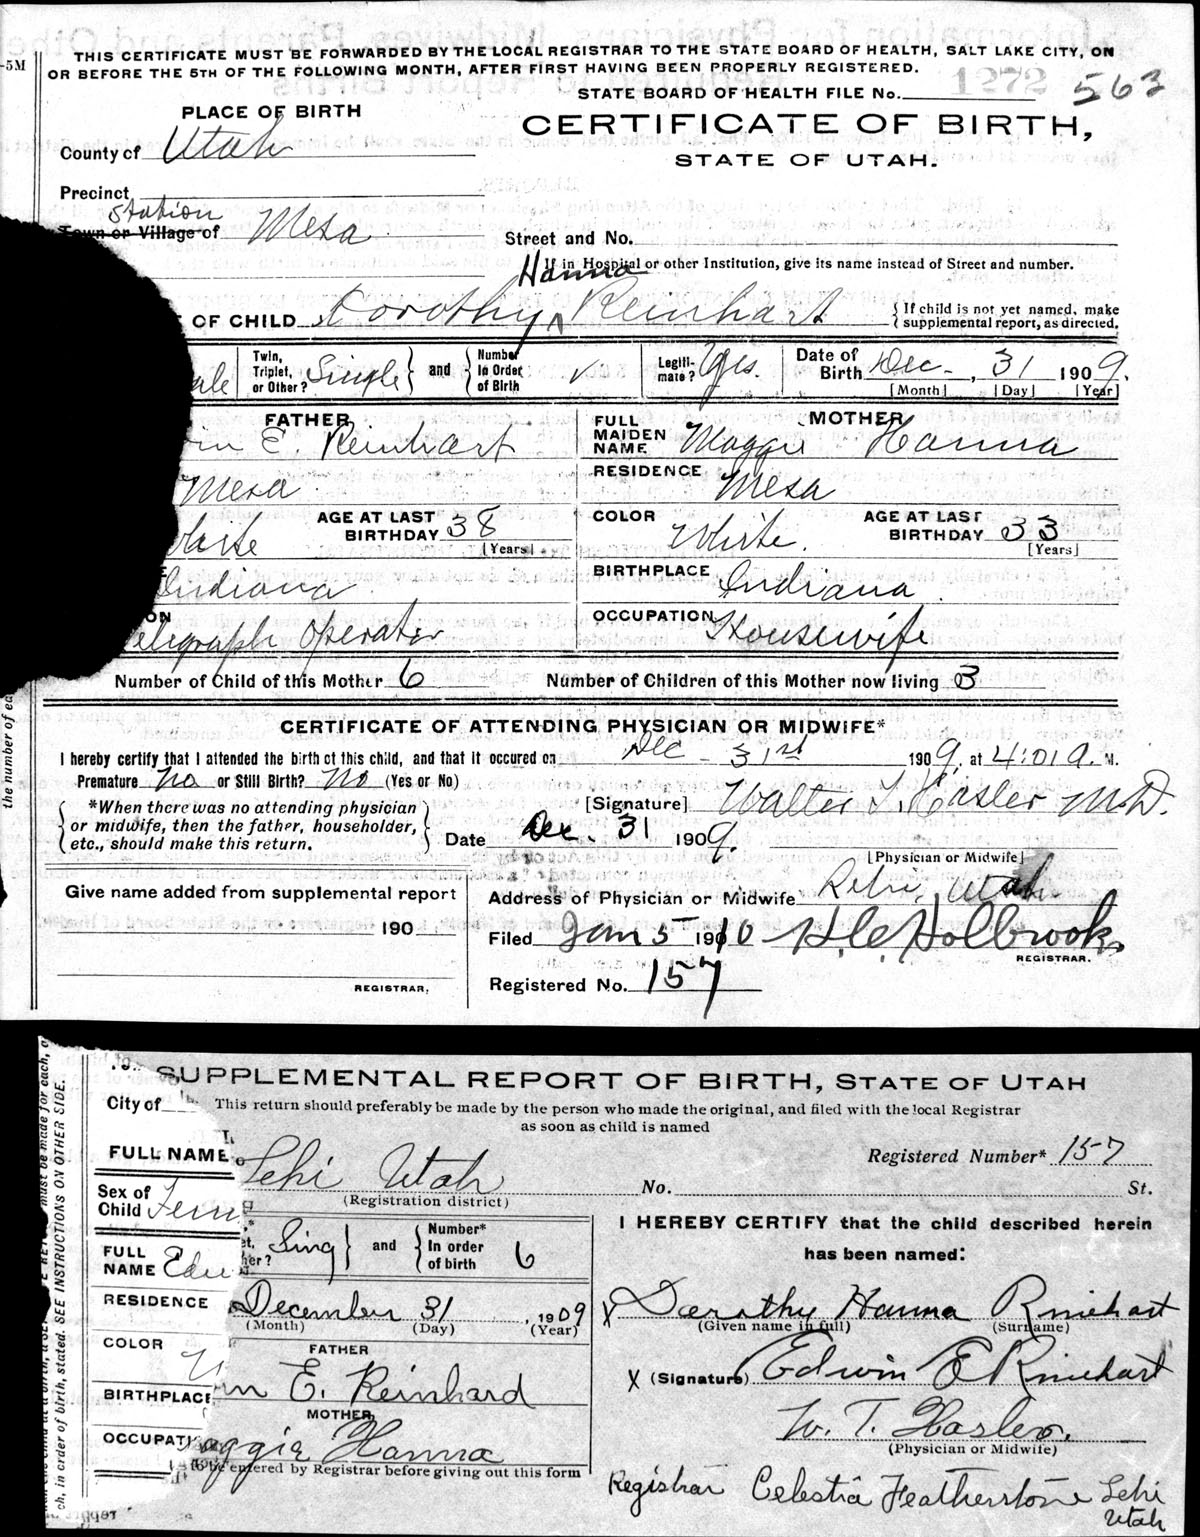 THIS CERTIFICATE MUST BE FORWARDED BY THE LOCAL REGISTRAR TO THE STATE BOARD OF HEALTH, SALT LAKE CITY, ON
-5M OR BEFORE THE 5TH OF THE FOLLOWING MONTH, AFTER FIRST HAVING BEEN PROPERLY REGISTERED.
STATE BOARD OF HEALTH FILE No. 1272 563
PLACE OF BIRTH
CERTIFICATE OF BIRTH,
County of Utah
STATE OF UTAH.
Precinct
Station
Town or Village of Mesa
Street and No.
If in Hospital or other Institution, give its name instead of Street and number.
Hanna
E OF CHILD Dorothy Reinhart
{If child is not yet named, make
supplemental report, as directed.
ale
Twin, Triplet, or Other? Single and Number In Order of Birth ✓
Legiti-mate? Yes.
Date of Birth Dec - , 31 1909.
[Month] [Day] [Year]
FATHER
in E. Reinhart
MOTHER
FULL MAIDEN NAME Maggie Hanna
Mesa
RESIDENCE Mesa
White AGE AT LAST BIRTHDAY 38 [Years]
COLOR White. AGE AT LAST BIRTHDAY 33 [Years]
Indiana
BIRTHPLACE Indiana
ON elegraph Operator
OCCUPATION Housewife
Number of Child of this Mother 6
Number of Children of this Mother now living 3
the number of ea
CERTIFICATE OF ATTENDING PHYSICIAN OR MIDWIFE*
I hereby certify that I attended the birth of this child, and that it occured on Dec - 31st 1909, at 4:01 a. M.
Premature No or Still Birth? No (Yes or No)
*When there was no attending physician
or midwife, then the father, householder,
etc., should make this return.
[Signature] Walter T. Hasler M.D.
Date Dec. 31 1909.
[Physician or Midwife]
Give name added from supplemental report
Address of Physician or Midwife Lehi, Utah
190
Filed Jan 5 1910 H.C. Holbrook
REGISTRAR.
REGISTRAR.
Registered No. 157
SUPPLEMENTAL REPORT OF BIRTH, STATE OF UTAH
City of
This return should preferably be made by the person who made the original, and filed with the local Registrar
as soon as child is named
FULL NAME
Lehi Utah
(Registration district)
Registered Number* 157
No. St.
Sex of Child Fem
Sing and Number* In order of birth 6
I HEREBY CERTIFY that the child described herein
has been named:
FULL NAME Edw
RESIDENCE
December 31 , 1909
(Month) (Day) (Year)
X Dorothy Hanna Rinehart
(Given name in full) (Surname)
COLOR W
FATHER
in E. Reinhard
X (Signature) Edwin E Rinehart
BIRTHPLACE
MOTHER
aggie Hanna
W. T. Hasler.
(Physician or Midwife)
OCCUPATI
to be entered by Registrar before giving out this form
Registrar Celestia Featherstone Lehi
Utah
ch, in order of birth, stated. SEE INSTRUCTIONS ON OTHER SIDE.